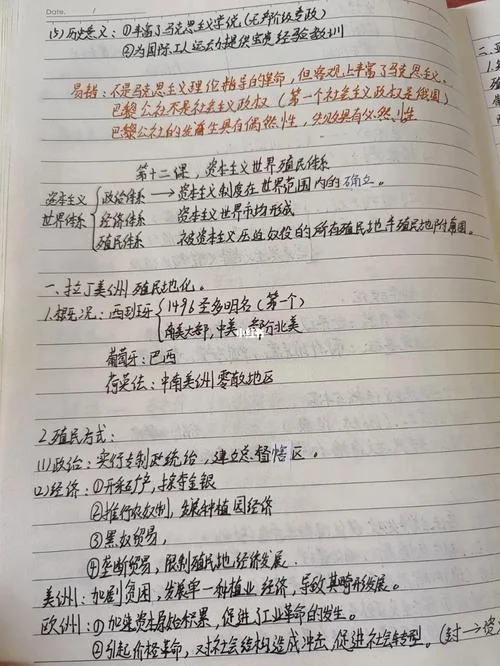 Date. /
(5) 历史意义：①丰富了马克思主义学说(无产阶级专政)
②为国际工人运动提供宝贵经验教训
易错：不是马克思主义理论指导的革命，但客观上丰富了马克思主义。
巴黎公社不是社会主义政权（第一个社会主义政权是俄国）
巴黎公社的发生具有偶然性，失败具有必然性
第十二课，资本主义世界殖民体系
资本主义世界体系 政治体系 → 资本主义制度在世界范围内的确立。
经济体系 资本主义世界市场形成
殖民体系 被资本主义压迫奴役的所有殖民地半殖民地附庸国。
一、拉丁美洲殖民地化。
1.概况：西班牙 1496圣多明各（第一个）
南美大部，中美，部分北美
葡萄牙：巴西
荷英法：中南美洲零散地区
小红书
2.殖民方式：
(1)政治：实行专制政统治，建立总督辖区。
(2)经济：①开采矿产，掠夺金银
②推行农奴制，发展种植园经济
③黑奴贸易，
④垄断贸易，限制殖民地经济发展.
美洲：加剧贫困，发展单一种植业经济，导致其畸形发展。
欧洲：①加速资本原始积累，促进了工业革命的发生。
②引起价格革命，对社会结构造成冲击，促进社会转型。(封→资